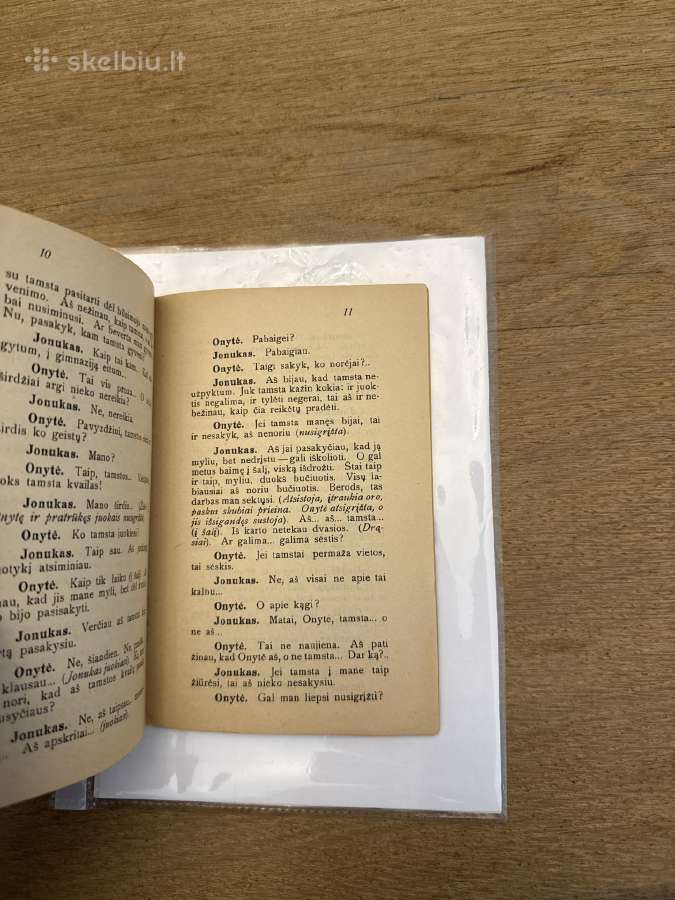 skelbiu.lt
10
su tamsta pasitarti dėl būsimojo
venimo. Aš nežinau, kaip tamsta,
bai nusiminusi. Ar beverta
Nu, pasakyk, kam tamsta
Jonukas. Kaip tai kam...
gytum, į gimnaziją eitum...
Onytė. Tai vis protu...
širdžiai argi nieko nereikia?
Jonukas. Ne, nereikia.
Onytė. Pavyzdžiui, tamstos
širdis ko geistų?
Jonukas. Mano?
Onytė. Taip, tamstos...
tamsta kvailas!
Jonukas. Mano širdis...
Onytę ir pratrūkęs juokais
Onytė. Ko tamsta juokies?
Jonukas. Taip sau. Aš
atsiminiau.
Onytė. Kaip tik laiku (į šalį).
kad jis mane myli, bet dėl
bijo pasisakyti.
Jonukas. Verčiau aš tamstai
pasakysiu.
Onytė. Ne, šiandien. Nu,
klausau... (Jonukas juokiasi).
nori, kad aš tamstos
Jonukas. Ne, aš taip
Aš apskritai... (juokiasi).
11
Onytė. Pabaigei?
Jonukas. Pabaigiau.
Onytė. Taigi sakyk, ko norėjai?..
Jonukas. Aš bijau, kad tamsta ne-
užpyktum. Juk tamsta kažin kokia: ir juok-
tis negalima, ir tylėti negerai, tai aš ir ne-
bežinau, kaip čia reikėtų pradėti.
Onytė. Jei tamsta manęs bijai, tai
ir nesakyk, aš nenoriu (nusigrįžta).
Jonukas. Aš jai pasakyčiau, kad ją
myliu, bet nedrįstu — gali iškolioti. O gal
metus baimę į šalį, viską išdrožti. Štai taip
ir taip, myliu, duok bučiuotis. Visų la-
biausiai aš noriu bučiuotis. Berods, tas
darbas man sektųsi. (Atsistoja, įtraukia oro,
paskui skubiai prieina. Onytė atsigrįžta, o
jis išsigandęs sustoja). Aš... aš... tamsta...
(į šalį). Iš karto netekau dvasios. (Drą-
siai). Ar galima... galima sėstis?
Onytė. Jei tamstai permaža vietos,
tai sėskis.
Jonukas. Ne, aš visai ne apie tai
kalbu...
Onytė. O apie kągi?
Jonukas. Matai, Onyte, tamsta... o
ne aš...
Onytė. Tai ne naujiena. Aš pati
žinau, kad Onytė aš, o ne tamsta... Dar ką?..
Jonukas. Jei tamsta į mane taip
žiūrėsi, tai aš nieko nesakysiu.
Onytė. Gal man liepsi nusigrįžti?